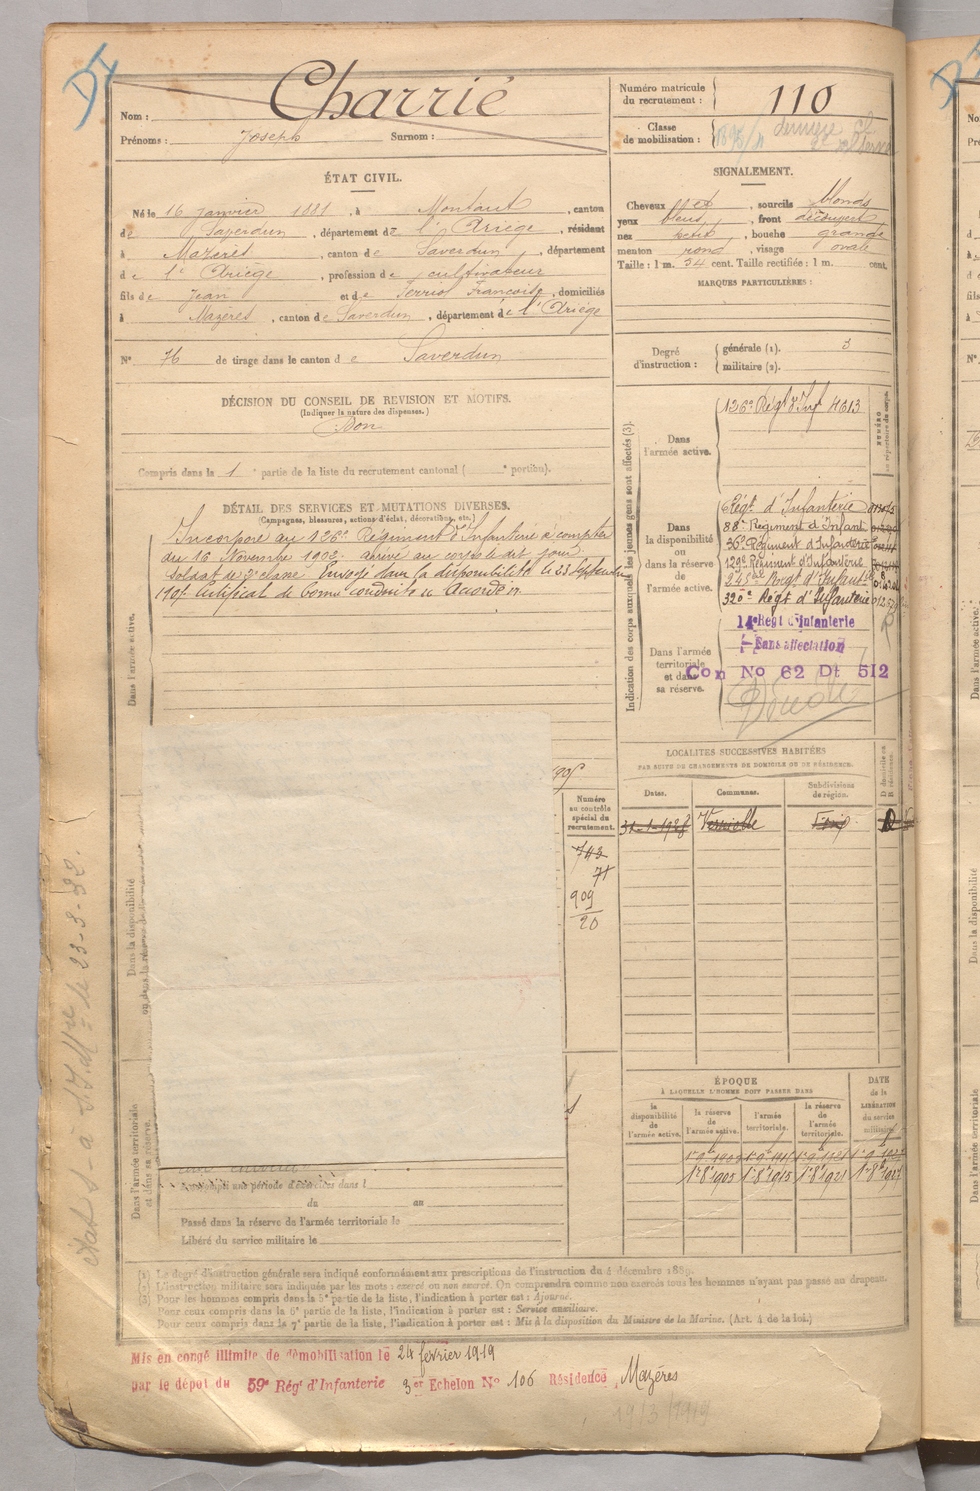 Charrié
Nom :
Prénoms : Joseph Surnom :
Numéro matricule
du recrutement : 110
Classe
de mobilisation :
ÉTAT CIVIL.
Né le 16 janvier 1881, à Montaut, canton
de Saverdun, département de l'Ariège, résidant
à Mazères, canton de Saverdun, département
de l'Ariège, profession de cultivateur
fils de Jean et de Terriol Françoise, domiciliés
à Mazères, canton de Saverdun, département de l'Ariège
N° 76 de tirage dans le canton de Saverdun
SIGNALEMENT.
Cheveux et, sourcils blonds
yeux bleus, front découvert
nez petit, bouche grande
menton rond, visage ovale
Taille : 1 m. 54 cent. Taille rectifiée : 1 m. cent.
MARQUES PARTICULIÈRES :
Degré
d'instruction :
générale (1). 3
militaire (2).
DÉCISION DU CONSEIL DE REVISION ET MOTIFS.
(Indiquer la nature des dispenses.)
Bon
Compris dans la 1e partie de la liste du recrutement cantonal ( e portion).
DÉTAIL DES SERVICES ET MUTATIONS DIVERSES.
(Campagnes, blessures, actions d'éclat, décorations, etc.)
Incorporé au 126e Régiment d'Infanterie à compter
du 16 Novembre 1902. arrivé au corps le dit jour
Soldat de 2e classe. Envoyé dans la disponibilité le 23 Septembre
190 Certificat de bonne conduite " Accordé "
Dans l'armée active.
Dans la disponibilité
ou dans la réserve de
Dans l'armée territoriale
et dans sa réserve.
Indication des corps auxquels les jeunes gens sont affectés (3).
Dans
l'armée active.
126e Régt d'Inf 4613
NUMÉRO
au répertoire du corps.
Dans
la disponibilité
ou
dans la réserve
de
l'armée active.
Régt d'Infanterie
88e Régiment d'Infant
36e Régiment d'Infanterie
129e Régiment d'Infanterie
245e Régt d'Infantie
320e Régt d'Infanterie
Dans l'armée
territoriale
et dans
sa réserve.
14e Régt d'Infanterie
Sans affectation
Con No 62 Dt 512
LOCALITÉS SUCCESSIVES HABITÉES
PAR SUITE DE CHANGEMENTS DE DOMICILE OU DE RÉSIDENCE.
Dates.
Communes.
Subdivisions
de région.
D domicile ou
R résidence.
31-1-1928 Verniolle Foix D
Numéro
au contrôle
spécial du
recrutement.
743
71
909
20
ÉPOQUE
À LAQUELLE L'HOMME DOIT PASSER DANS
la
disponibilité
de
l'armée active.
la réserve
de
l'armée active.
l'armée
territoriale.
la réserve
de
l'armée
territoriale.
DATE
de la
LIBÉRATION
du service
militaire.
1r 8b 1905 1r 8b 1915 1r 8b 1921 1r 8b 1927
accompli une période d'exercices dans l
du au
Passé dans la réserve de l'armée territoriale le
Libéré du service militaire le
(1) Le degré d'instruction générale sera indiqué conformément aux prescriptions de l'instruction du 4 décembre 1889.
(2) L'instruction militaire sera indiquée par les mots : exercé ou non exercé. On comprendra comme non exercés tous les hommes n'ayant pas passé au drapeau.
(3) Pour les hommes compris dans la 5e partie de la liste, l'indication à porter est : Ajourné.
Pour ceux compris dans la 6e partie de la liste, l'indication à porter est : Service auxiliaire.
Pour ceux compris dans la 7e partie de la liste, l'indication à porter est : Mis à la disposition du Ministre de la Marine. (Art. 4 de la loi.)
Mis en congé illimité de démobilisation le 24 février 1919
par le dépôt du 59e Régt d'Infanterie 3er Echelon No 106 Résidence Mazéres
19/3/1919